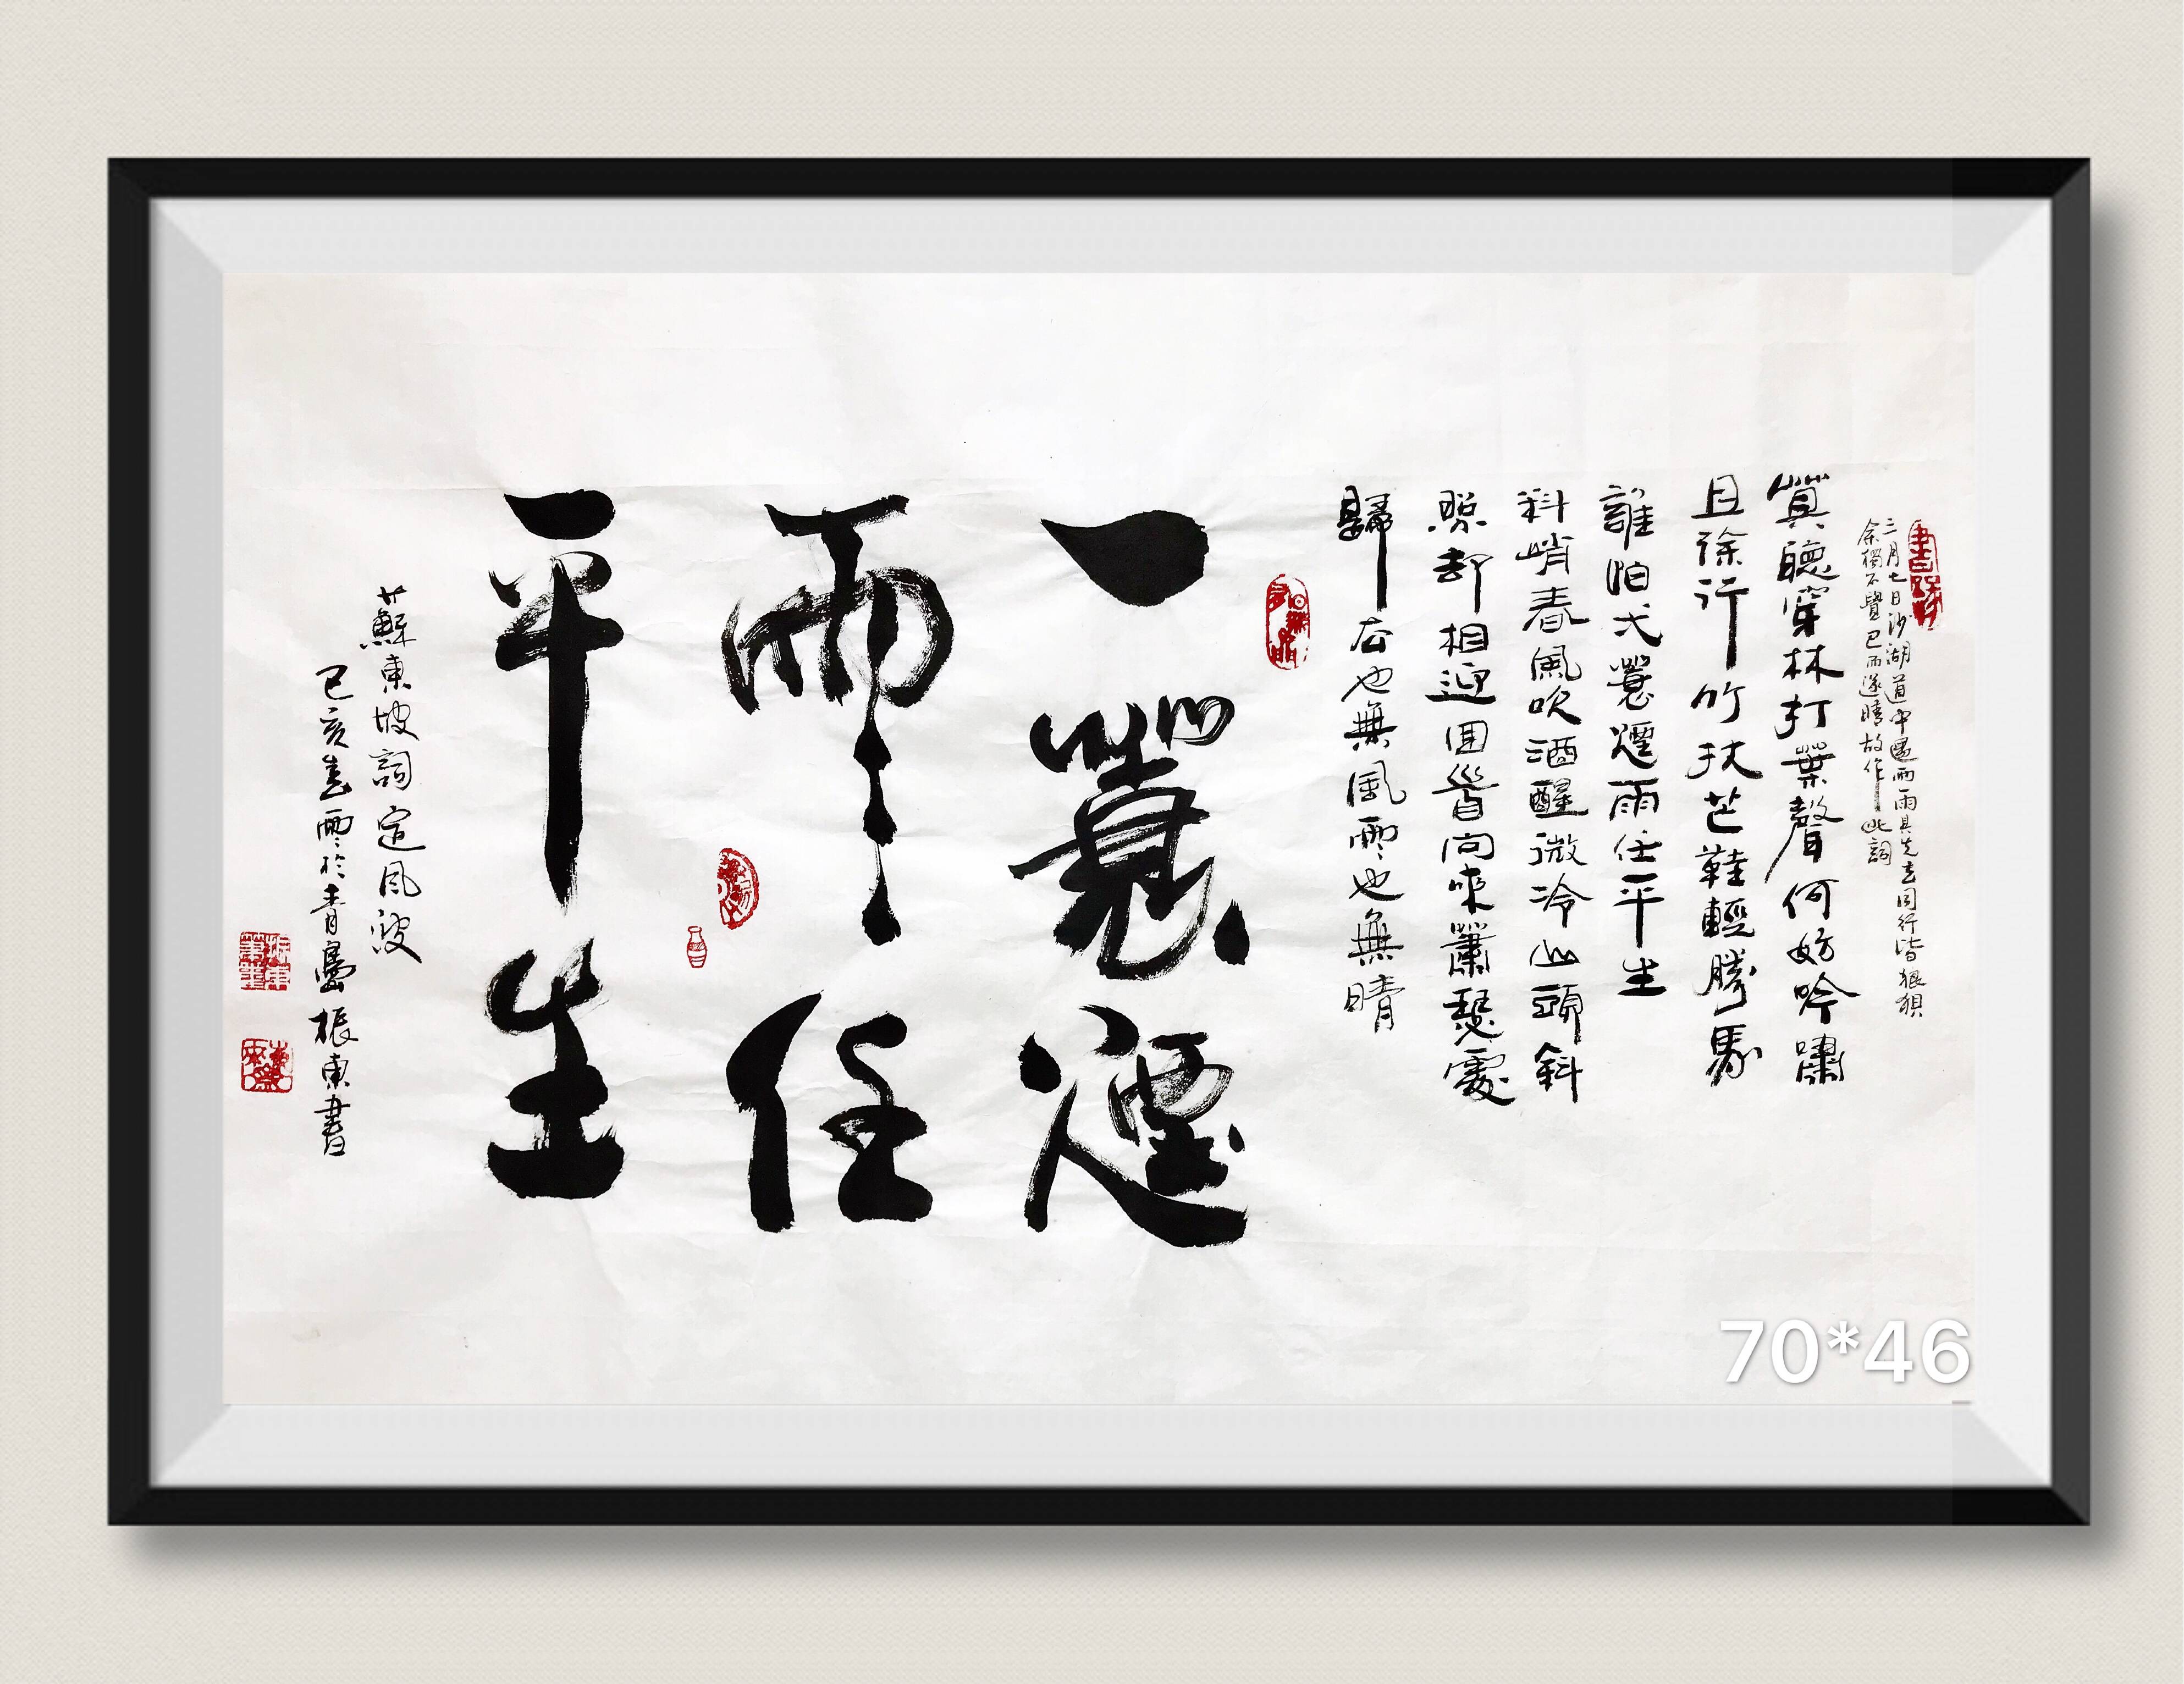 三月七日沙湖道中遇雨雨具先去同行皆狼狽
余獨不覺已而遂晴故作此詞
莫聽穿林打葉聲何妨吟嘯
且徐行竹杖芒鞋輕勝馬
誰怕弌蓑煙雨任平生
料峭春風吹酒醒微冷山頭斜
照却相迎回首向來蕭瑟處
歸去也無風雨也無晴
一蓑煙
雨任
平生
蘇東坡詞定風波
己亥春雨於青島振東書
70*46